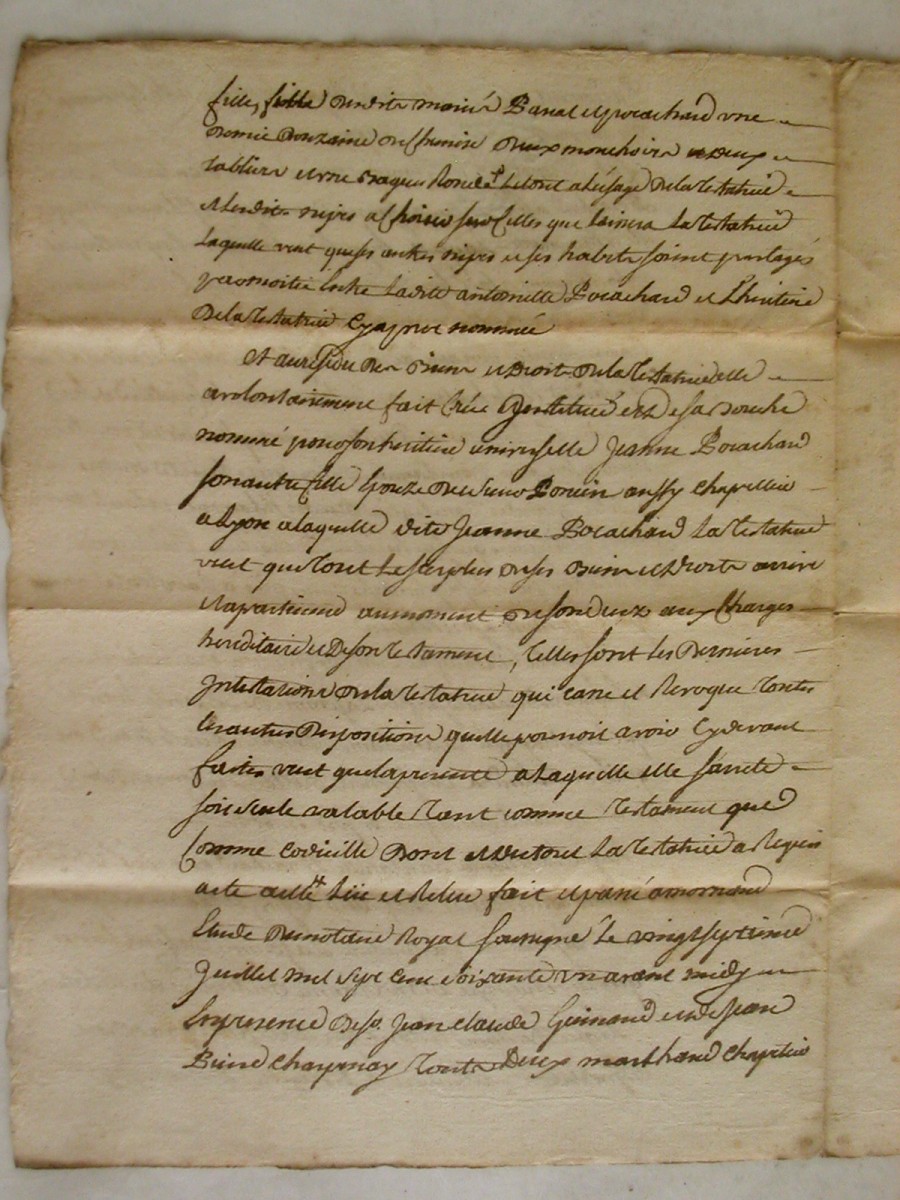 fille, fille desdits mariés Banal et Bouchard une
demie Douzaine de Chemise deux mouchoirs et deux
tabliers et une Bague Ronde Le tout a L'usage De la Testatrice
et lesdites nipes a Choisir sur Celles que laissera La Testatrice
Laquelle veut que ses autres nipes et ses habits soient partagés
par moitié Entre Ladite antoinette Bouchard et L'heritiere
De la Testatrice Cy aprez nommée
Et au residu des Biens et Droits de la Testatrice elle
a volontairement fait Créé Institué et de sa Bouche
nommé pour son heritiere universelle Jeanne Bouchard
son autre fille Epouze de sieur aussy Chapellier
a Lyon a laquelle dite Jeanne Bouchard La Testatrice
veut que Tout Le surplus de ses Biens et Droits arrive
et apartienne au moment de son decez aux Charges
hereditaire et De son Testament, Telles sont Les Dernieres
Intentions de la Testatrice qui Casse et Revoque Toutes
les autres Dispositions quelle pourroit avoir Cy devant
faites veut que la presente a Laquelle elle s'arrete
soit seule valable Tant comme Testament que
Comme Codicille Dont et du tout La Testatrice a Requis
acte Lüe et Relue fait et passé a mornand
Etude du notaire Royal soussigné Le vingt septieme
Juillet mil sept cent soixante un avant midy
En presence de sr. Jean Claude Guinand et de Jean
Chapellier Tout Deux marchand Chapellier